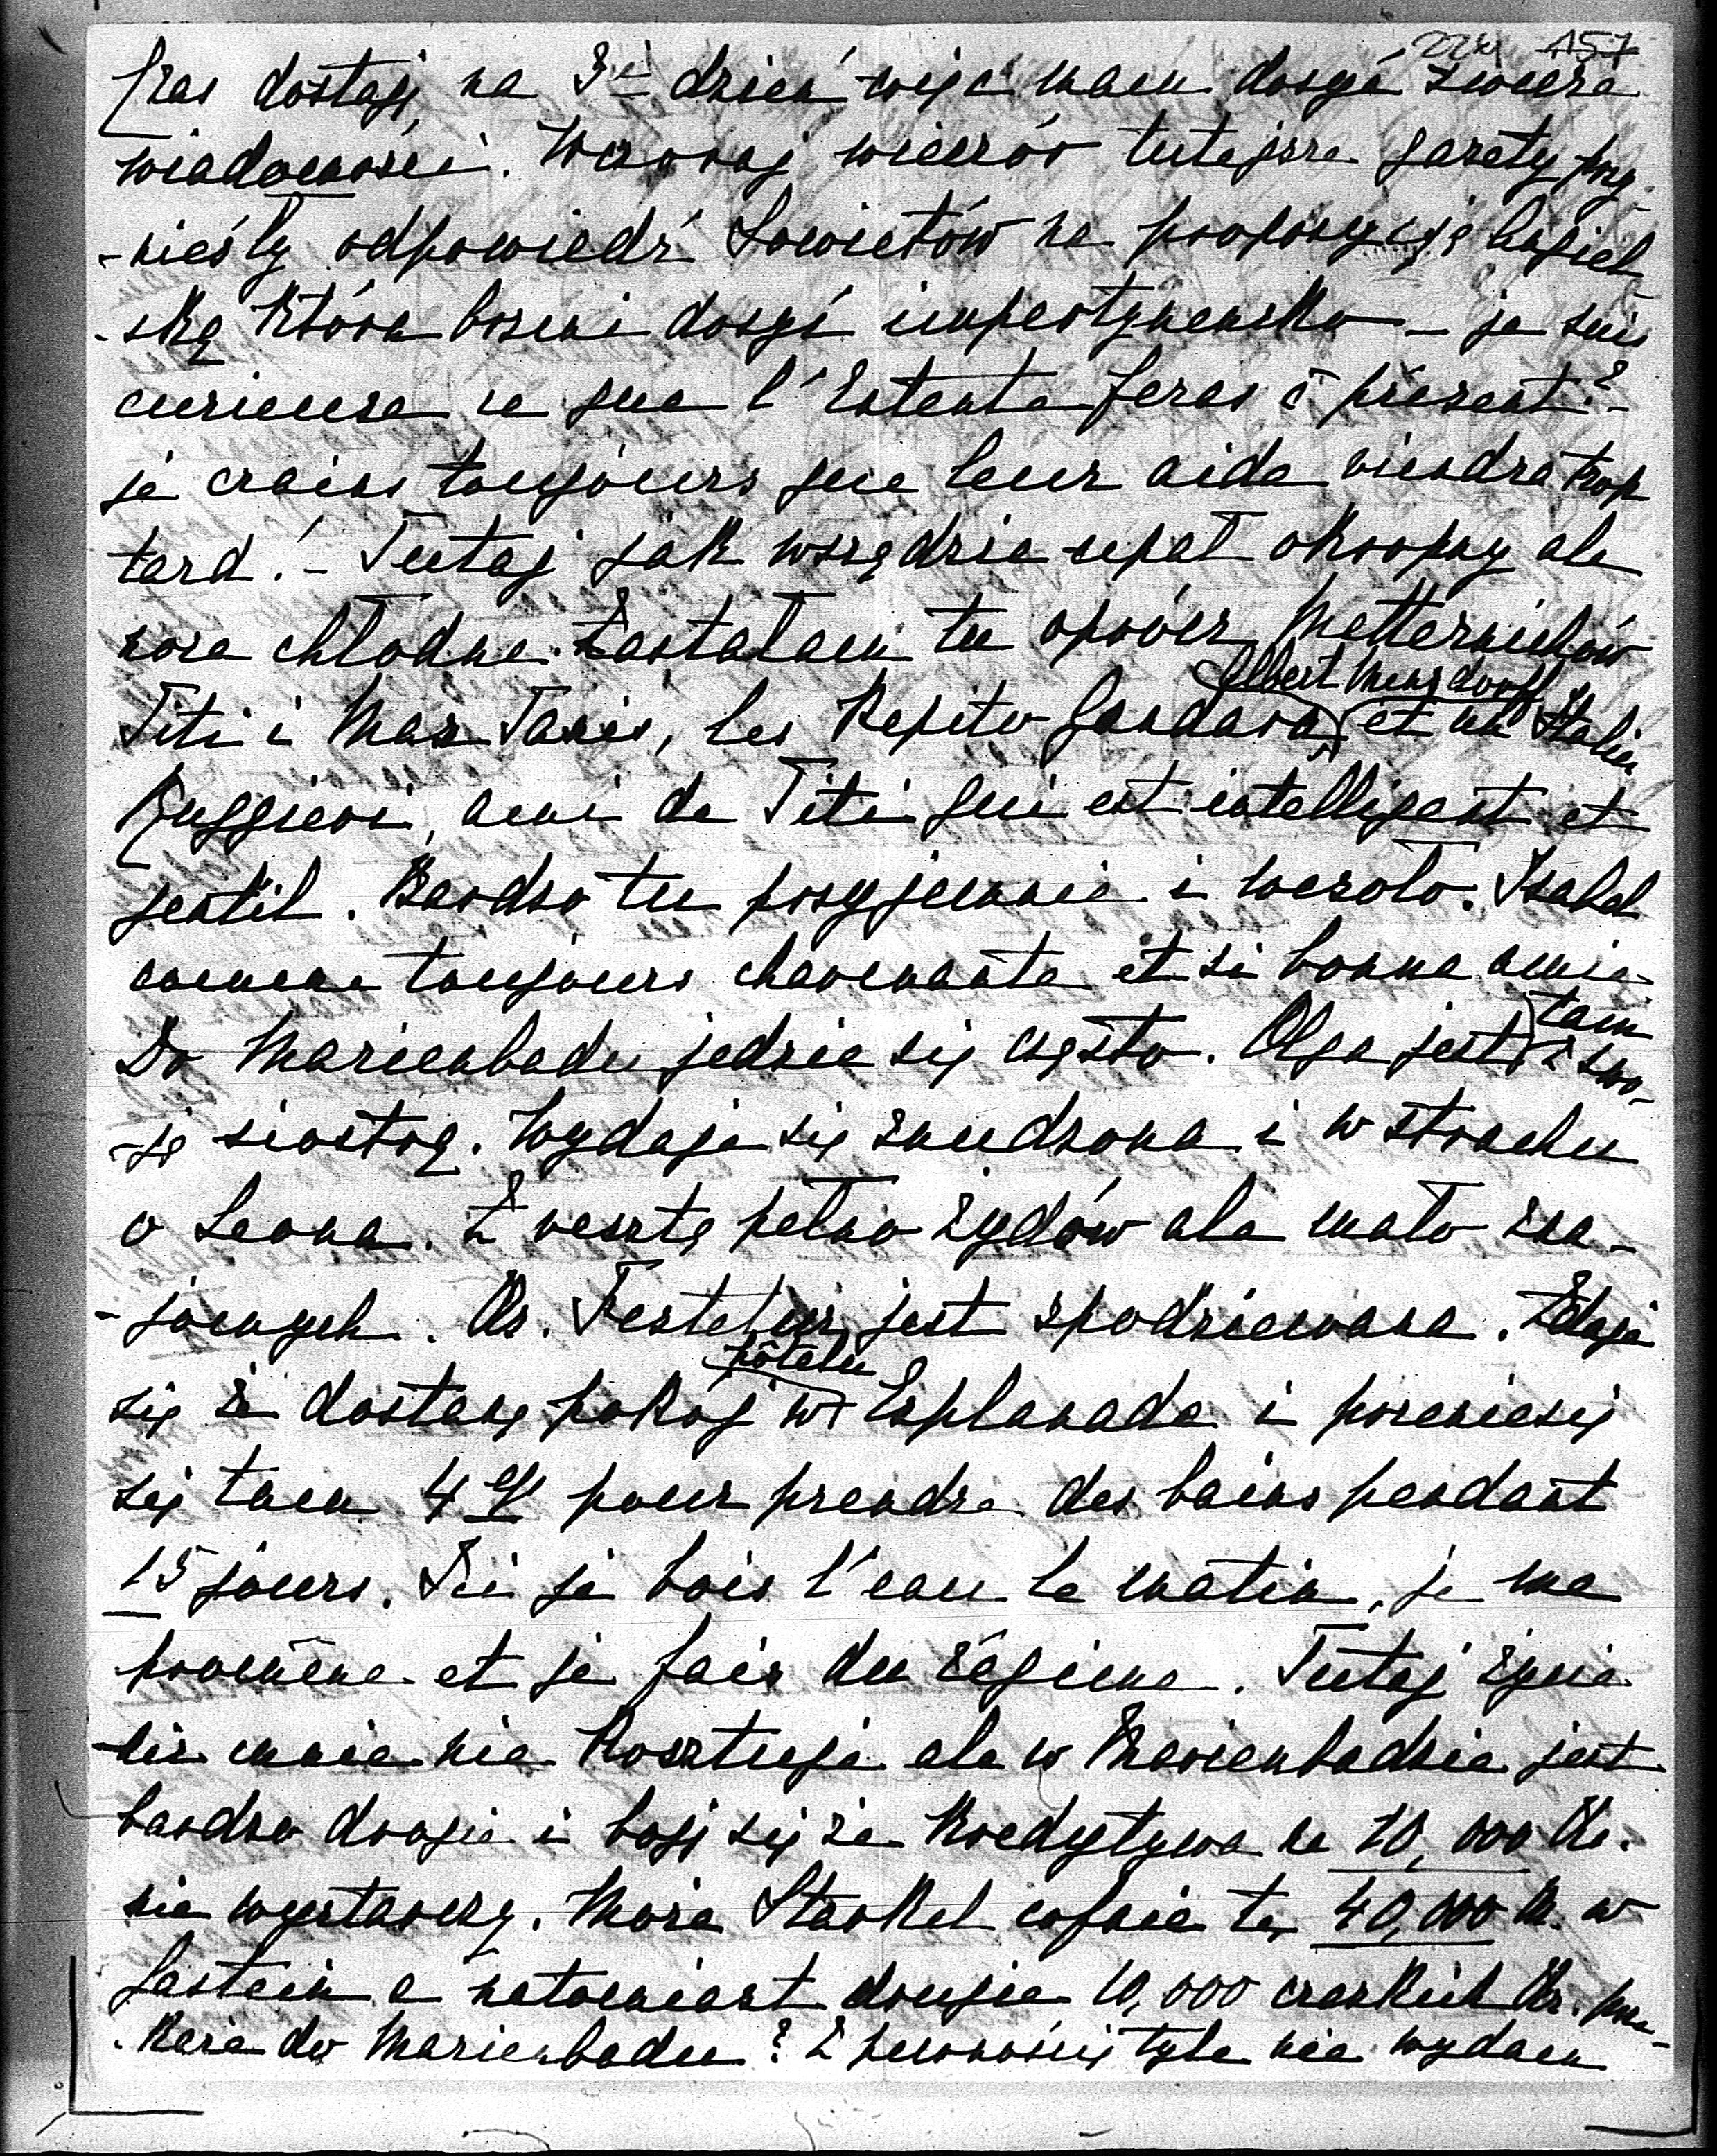 224 157
Czas dostaję na 3ci dzień więc mam dosyć świeże
wiadomości. Wczoraj wieczór tutejsze gazety przy-
-niosły odpowiedź Sowietów na propozycyję Angiel-
-ską która brzmi dosyć impertynencko – je suis
curieuse ce que l'Entente feras à présent? –
je crains toujours que leur aide viendra trop
tard! – Tutaj jak wszędzie upał okropny ale
noce chłodne. Zastałam tu oprócz Metternichów
Titi i Max Taxis, les Pepito Gandara, Albert Mensdorff et un Italien
Ruggieri, ami de Titi qui est intelligent et
gentil. Bardzo tu przyjemnie i wesoło. Isabel
comme toujours charmante et si bonne amie.
Do Marienbadu jedzie się często. Olga jest tam z swo-
-ją siostrą. Wydaje się znudzona i w strachu
o Leona. Z resztą pełno Żydów ale mało zna-
-jomych. Ks. Festetics jest spodziewana. Zdaje
się że dostanę pokój w hôtelu Esplanade i przeniesię
się tam 4go pour prendre des bains pendant
15 jours. Ici je bois l'eau le matin, je me
promène et je fais du régime. Tutaj życie
nic mnie nie kosztuje ale w Marienbadzie jest
bardzo drogie i boję się że kredytywa na 10,000 Kr.
nie wystarczy. Może Starkel cofnie te 40,000 K. w
Gastein a natomiast drugie 10,000 czeskich Kr. prze-
-każe do Marienbadu? Z pewnością tyle nie wydam